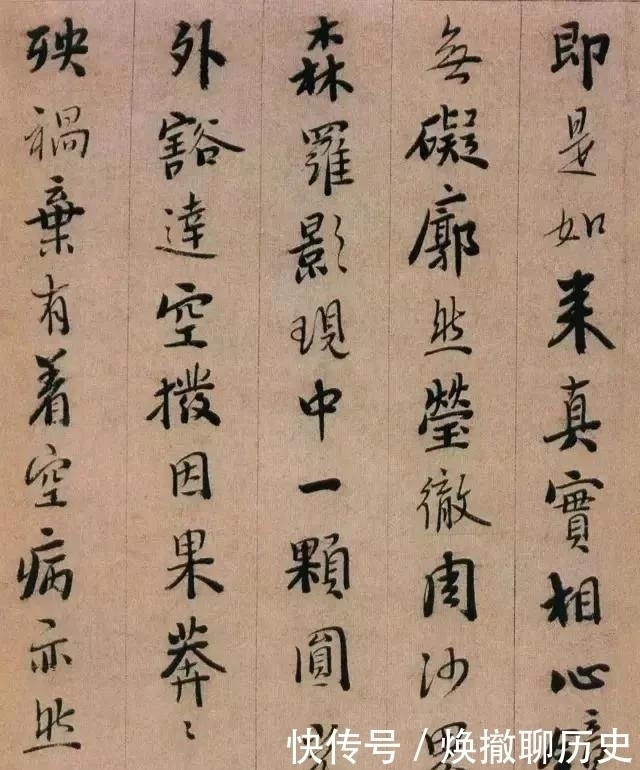 即是如来真實相心
無礙廓然瑩徹周沙
森羅影現中一顆圓
外豁達空撥因果莽〻
殃禍棄有着空病亦然
快传号 / 焕撤聊历史